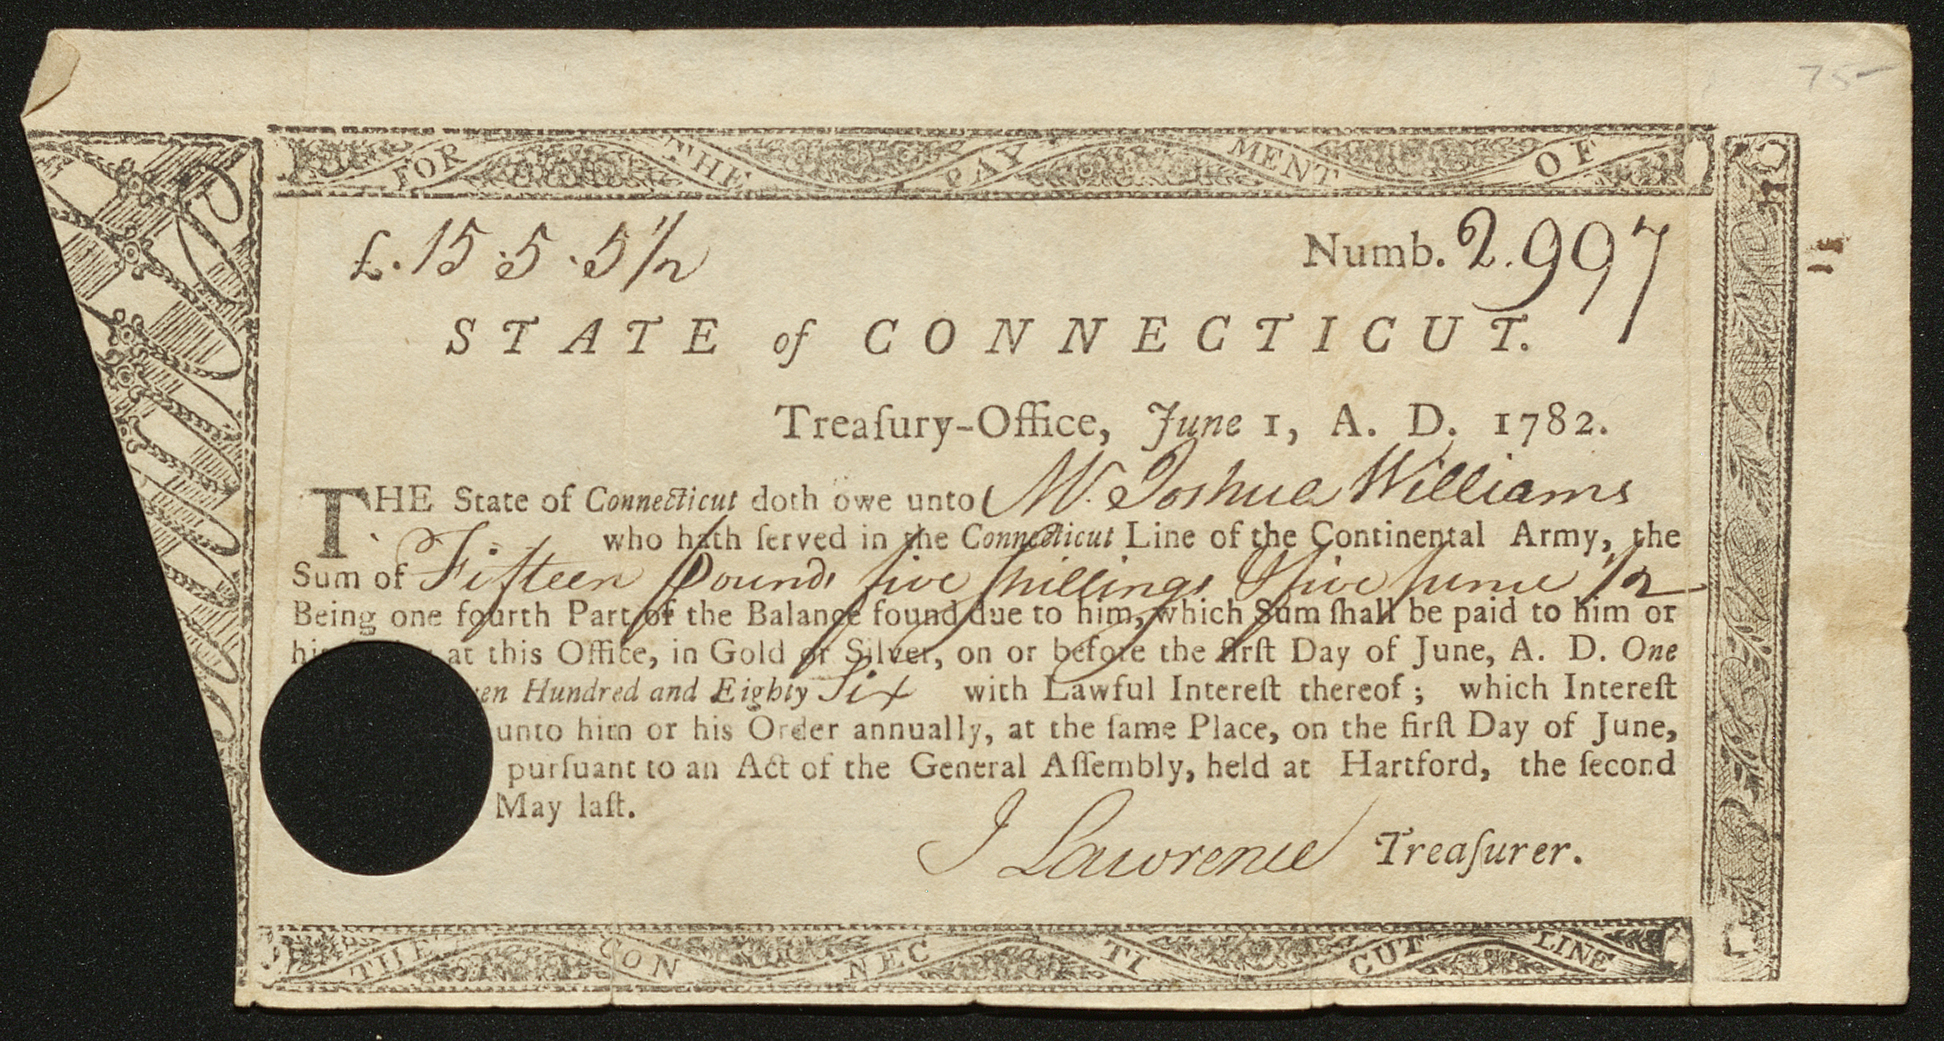 75-
FOR THE PAYMENT OF
£.15.5.5½
Numb. 2.997
STATE of CONNECTICUT.
Treaſury-Office, June 1, A. D. 1782.
THE State of Connecticut doth owe unto Mr. Joshua Williams
who hath ſerved in the Connecticut Line of the Continental Army, the
Sum of Fifteen Pounds five ſhillings & five 1/2
Being one fourth Part of the Balance found due to him, which Sum ſhall be paid to him or
at this Office, in Gold or Silver, on or before the firſt Day of June, A. D. One
Hundred and Eighty Six with Lawful Intereſt thereof; which Intereſt
unto him or his Order annually, at the ſame Place, on the firſt Day of June,
purſuant to an Act of the General Aſſembly, held at Hartford, the ſecond
May laſt.
J Lawrence Treaſurer.
THE CONNECTICUT LINE